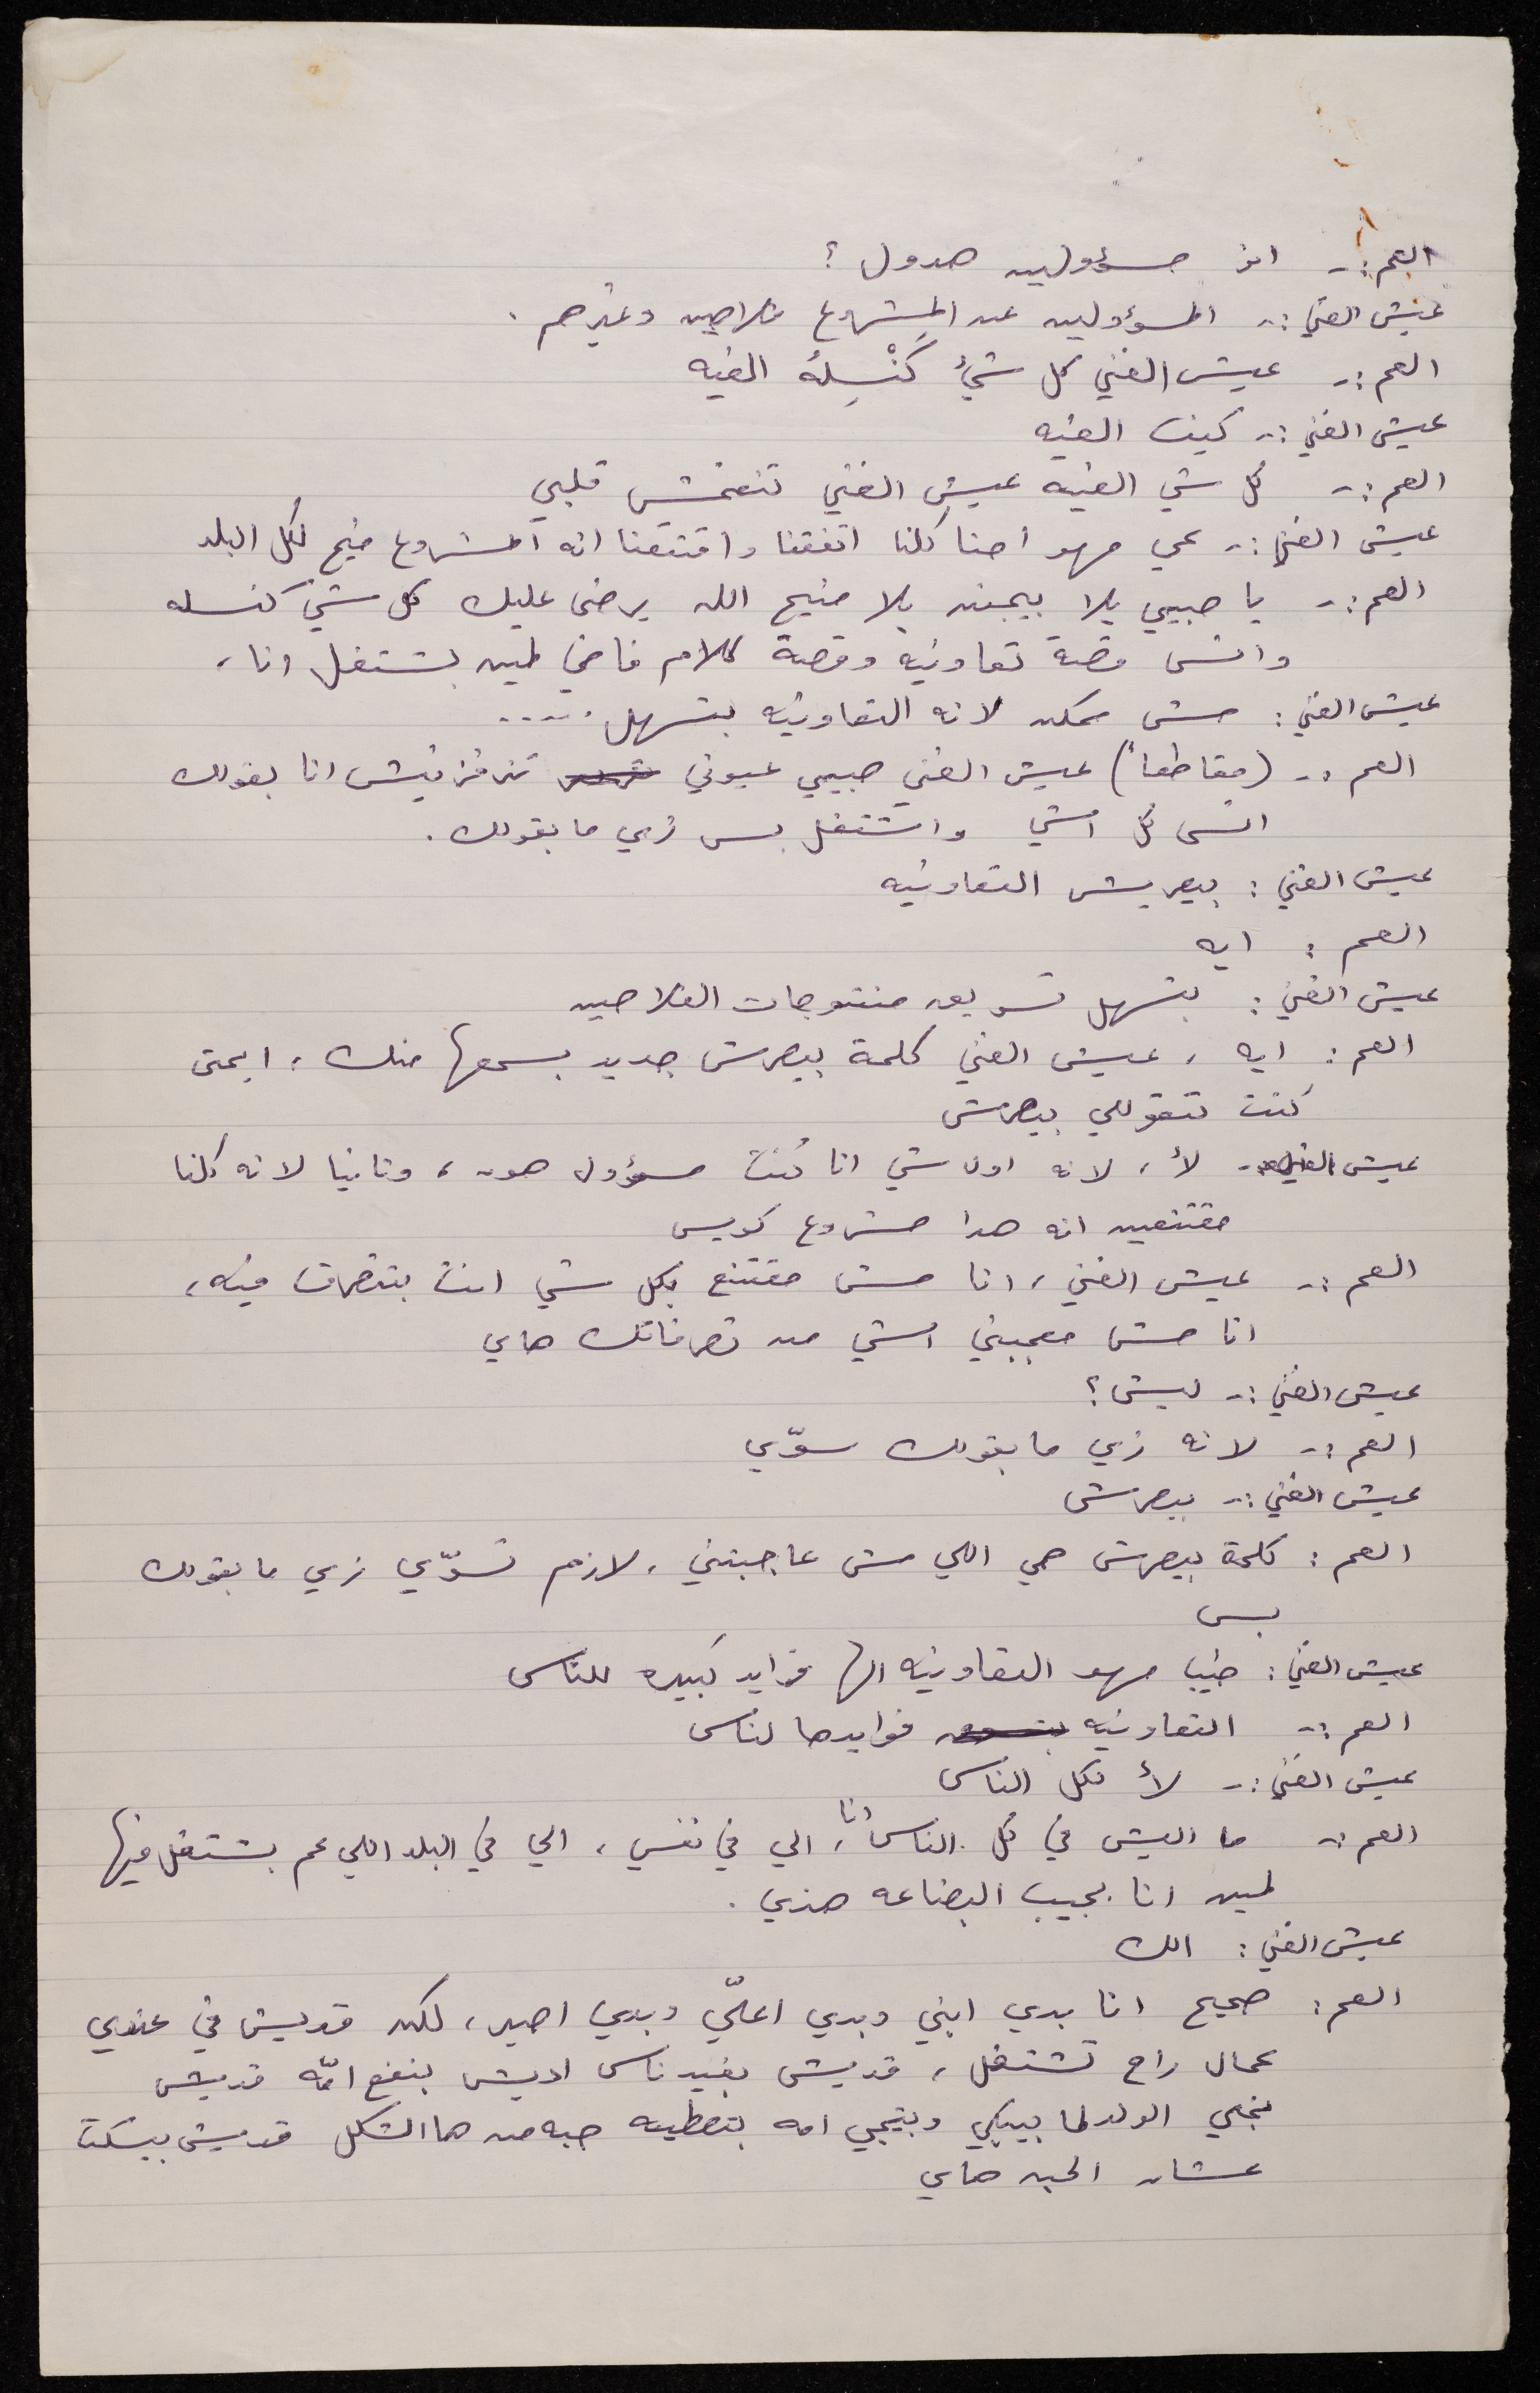 العم :- اي مسؤولين هدول ؟
عيش الغني :- المسؤولين عن المشروع فلاحين وغيرهم .
العم :- عيش الغني كل شيء كَنْسِلهُ الغيه
عيش الغني :- كيف الغيه
العم :- كل شي الغيه عيش الغني تنغمش قلبي
عيش الغني :- عمي مهو احنا كلنا اتفقنا واقتنعنا انه المشروع منيح لكل البلد
العم :- يا حبيبي بلا بيجنن بلا منيح الله يرضى عليك كل شي كنسله
وانسى قصة تعاونيه وقصة كلام فاضي لمين بشتغل انا ،
عيش الغني : مش ممكن لانه التعاونيه بتسهل .....
العم :- (مقاطعاً) عيش الغني حبيبي عيوني تنرفزنيش انا بقولك
انسى كل اشي واشتغل بس زي ما بقولك .
عيش الغني : بيصريش التعاونيه
العم : ايه
عيش الغني : بتسهل تسويق منتوجات الفلاحين
العم : ايه ، عيش الغني كلمة بيصرش جديد بسمعها منك ، ايمتى
كنت تتقوللي بيصرش
عيش الغني :- لأ ، لانه اول شي انا كُنت مسؤول هون ، وثانيا لانه كلنا
مقتنعين انه هدا مشروع كويس
العم :- عيش الغني ، انا مش مقتنع بكل شي انت بتتصرف فيه ،
انا مش معجبني اشي من تصرفاتك هاي
عيش الغني :- ليش ؟
العم :- لانه زي ما بقولك سوّي
عيش الغني :- بيصرش
العم : كلمة بيصرش هي اللي مش عاجبتني ، لازم تسوّي زي ما بقولك
بس
عيش الغني : طيب مهو التعاونيه الها فوايد كبيره للناس
العم :- التعاونيه فوايدها لناس
عيش الغني :- لأ لكل الناس
العم :- ما اليش في كل الناس أنا ، الي في نفسي ، الي في البلد اللي عم بشتغل فيها
لمين انا بجيب البضاعه هذي .
عيش الغني : الك
العم : صحيح انا بدي ابني وبدي اعلّي وبدي اصير ، لكن قديش في عندي
عمال راح تشتغل ، قديش بفيد ناس اديش بنفع امّه قديش
بخلي الولد لما بيبكي وبتيجي امه بتعطيه حبه من هاالشكل قديش بيسكت
عشان الحبه هاي